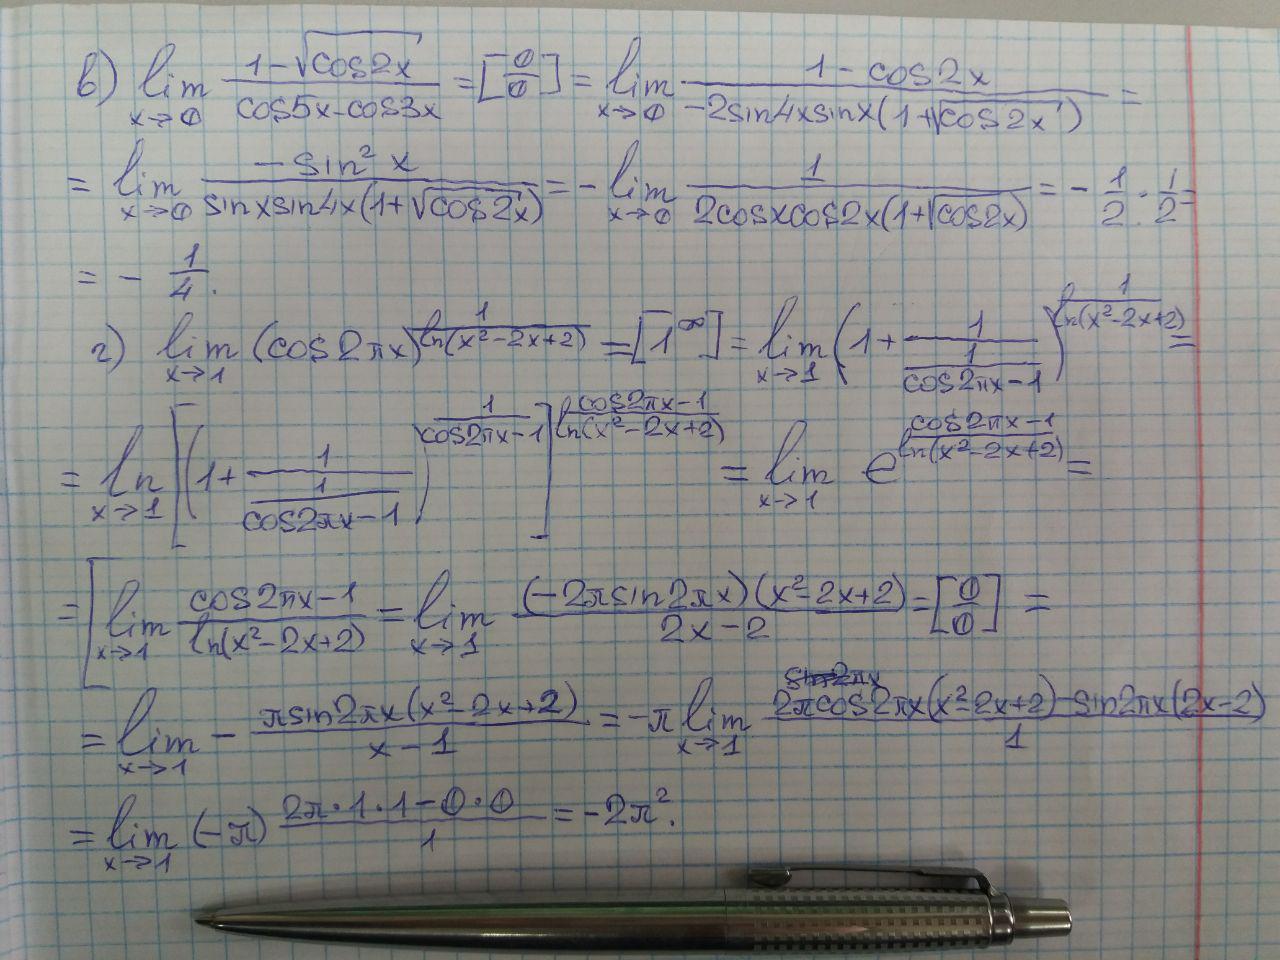 в) lim x→0 (1-√cos2x)/(cos5x-cos3x) = [0/0] = lim x→0 (1-cos2x)/(-2sin4xsinx(1+√cos2x)) =
= lim x→0 (-sin² x)/(sinxsin4x(1+√cos2x)) = -lim x→0 1/(2cosxcos2x(1+√cos2x)) = - 1/2 · 1/2 =
= - 1/4.
г) lim x→1 (cos2πx)^(1/ln(x²-2x+2)) = [1^∞] = lim x→1 (1+1/(1/(cos2πx-1)))^(1/ln(x²-2x+2)) =
= ln x→1 [(1+1/(1/(cos2πx-1)))^(1/(cos2πx-1))]^((cos2πx-1)/ln(x²-2x+2)) = lim x→1 e^((cos2πx-1)/ln(x²-2x+2)) =
= [lim x→1 (cos2πx-1)/ln(x²-2x+2) = lim x→1 ((-2πsin2πx)(x²-2x+2))/(2x-2) = [0/0] =
= lim x→1 - (πsin2πx(x²-2x+2))/(x-1) = -π lim x→1 (2πcos2πx(x²-2x+2)-sin2πx(2x-2))/1
= lim x→1 (-π) (2π·1·1-0·0)/1 = -2π².